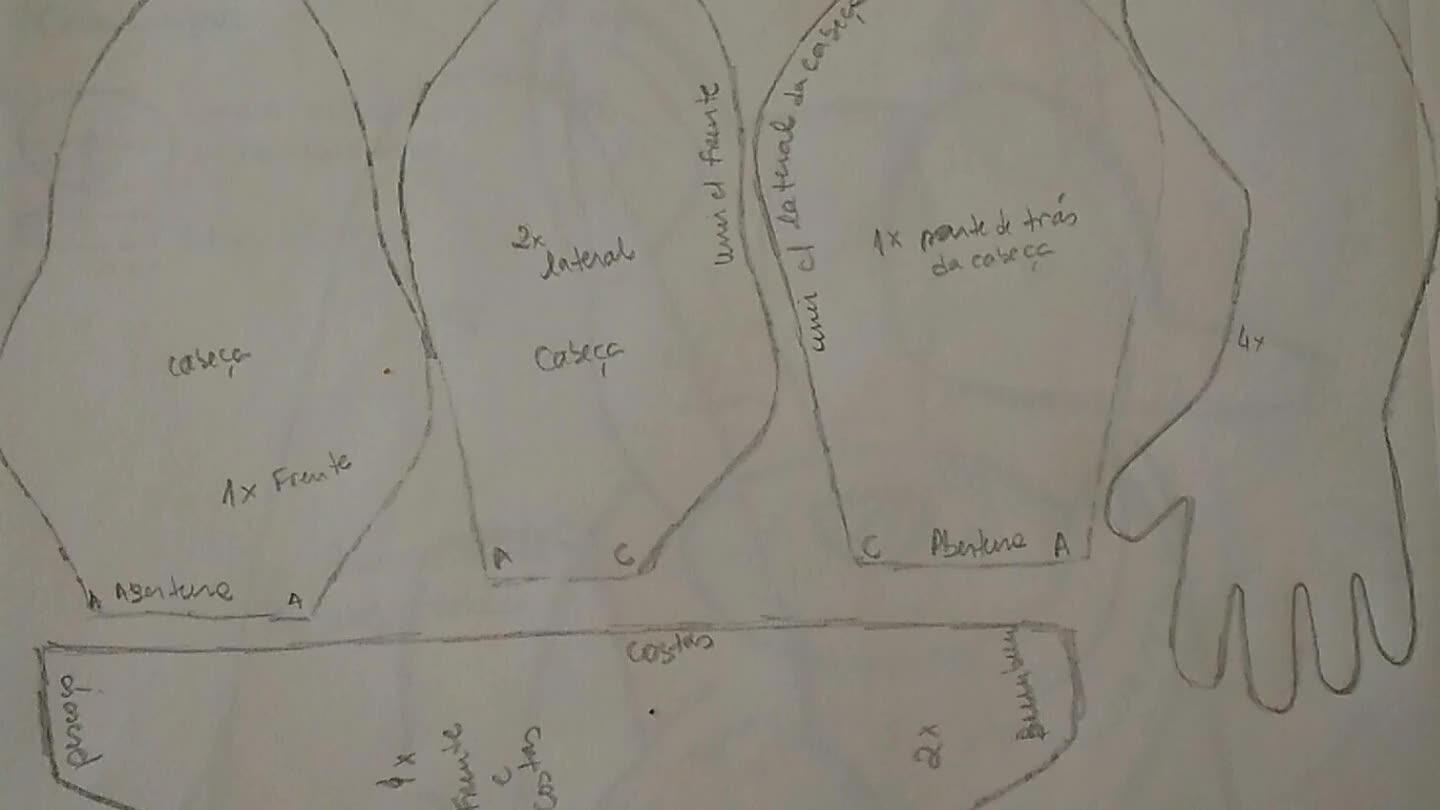 cabeça
1x Frente
A Abertura A
2x
lateral
Cabeça
unir c/ frente
A C
unir c/ lateral da cabeça
1x parte de trás
da cabeça
C Abertura A
4x
costas
pescoço
4x
Frente
e
costas
2x
Bumbum